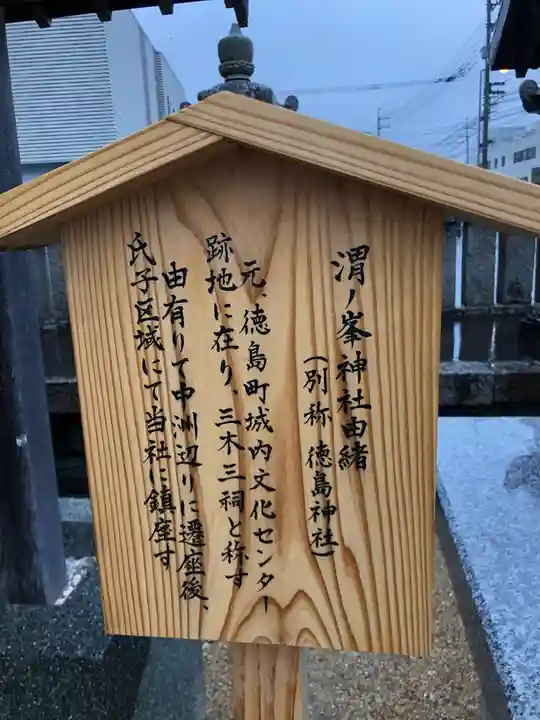 渭ノ峯神社由緒
（別称 徳島神社）
元、徳島町城内文化センター
跡地に在り、三木三祠と称す
由有りて中洲辺りに遷座後、
氏子区域にて当社に鎮座す